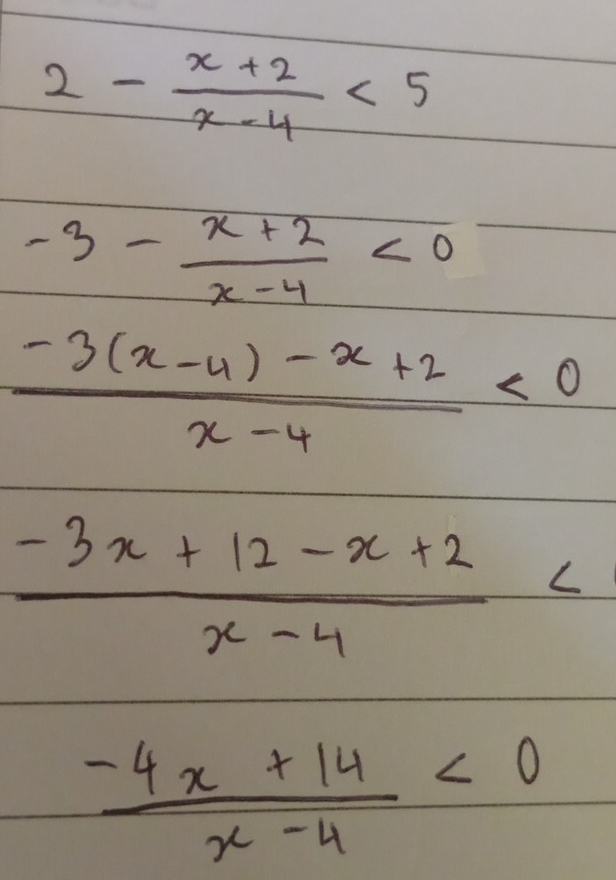 2 - \frac{x+2}{x-4} < 5
-3 - \frac{x+2}{x-4} < 0
\frac{-3(x-4) - x+2}{x-4} < 0
\frac{-3x + 12 - x + 2}{x-4} <
\frac{-4x + 14}{x-4} < 0